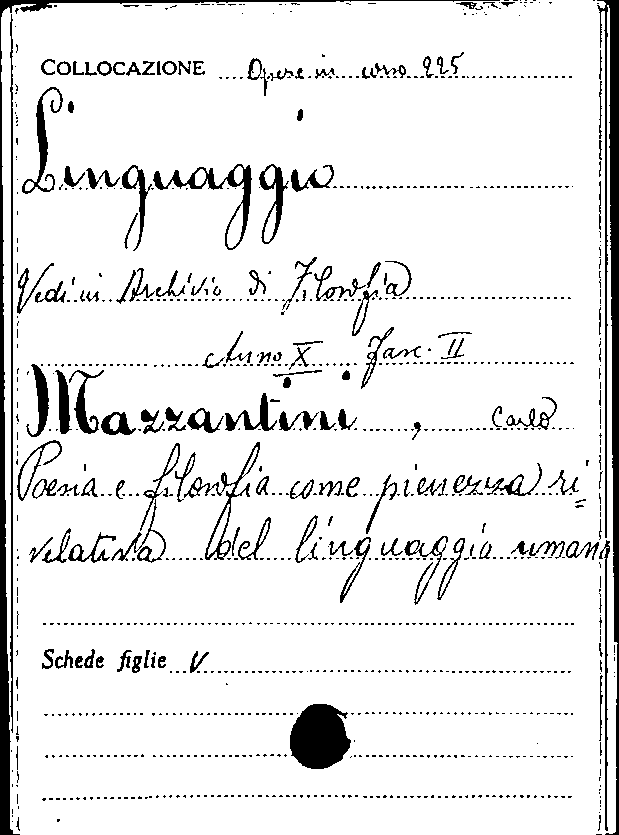 COLLOCAZIONE Opere in corso 225
Linguaggio
Vedi in Archivio di Filosofia
Anno X Fasc. II
Mazzantini, Carlo
Poesia e filosofia come pienezza ri=
velativa del linguaggio umano
Schede figlie V